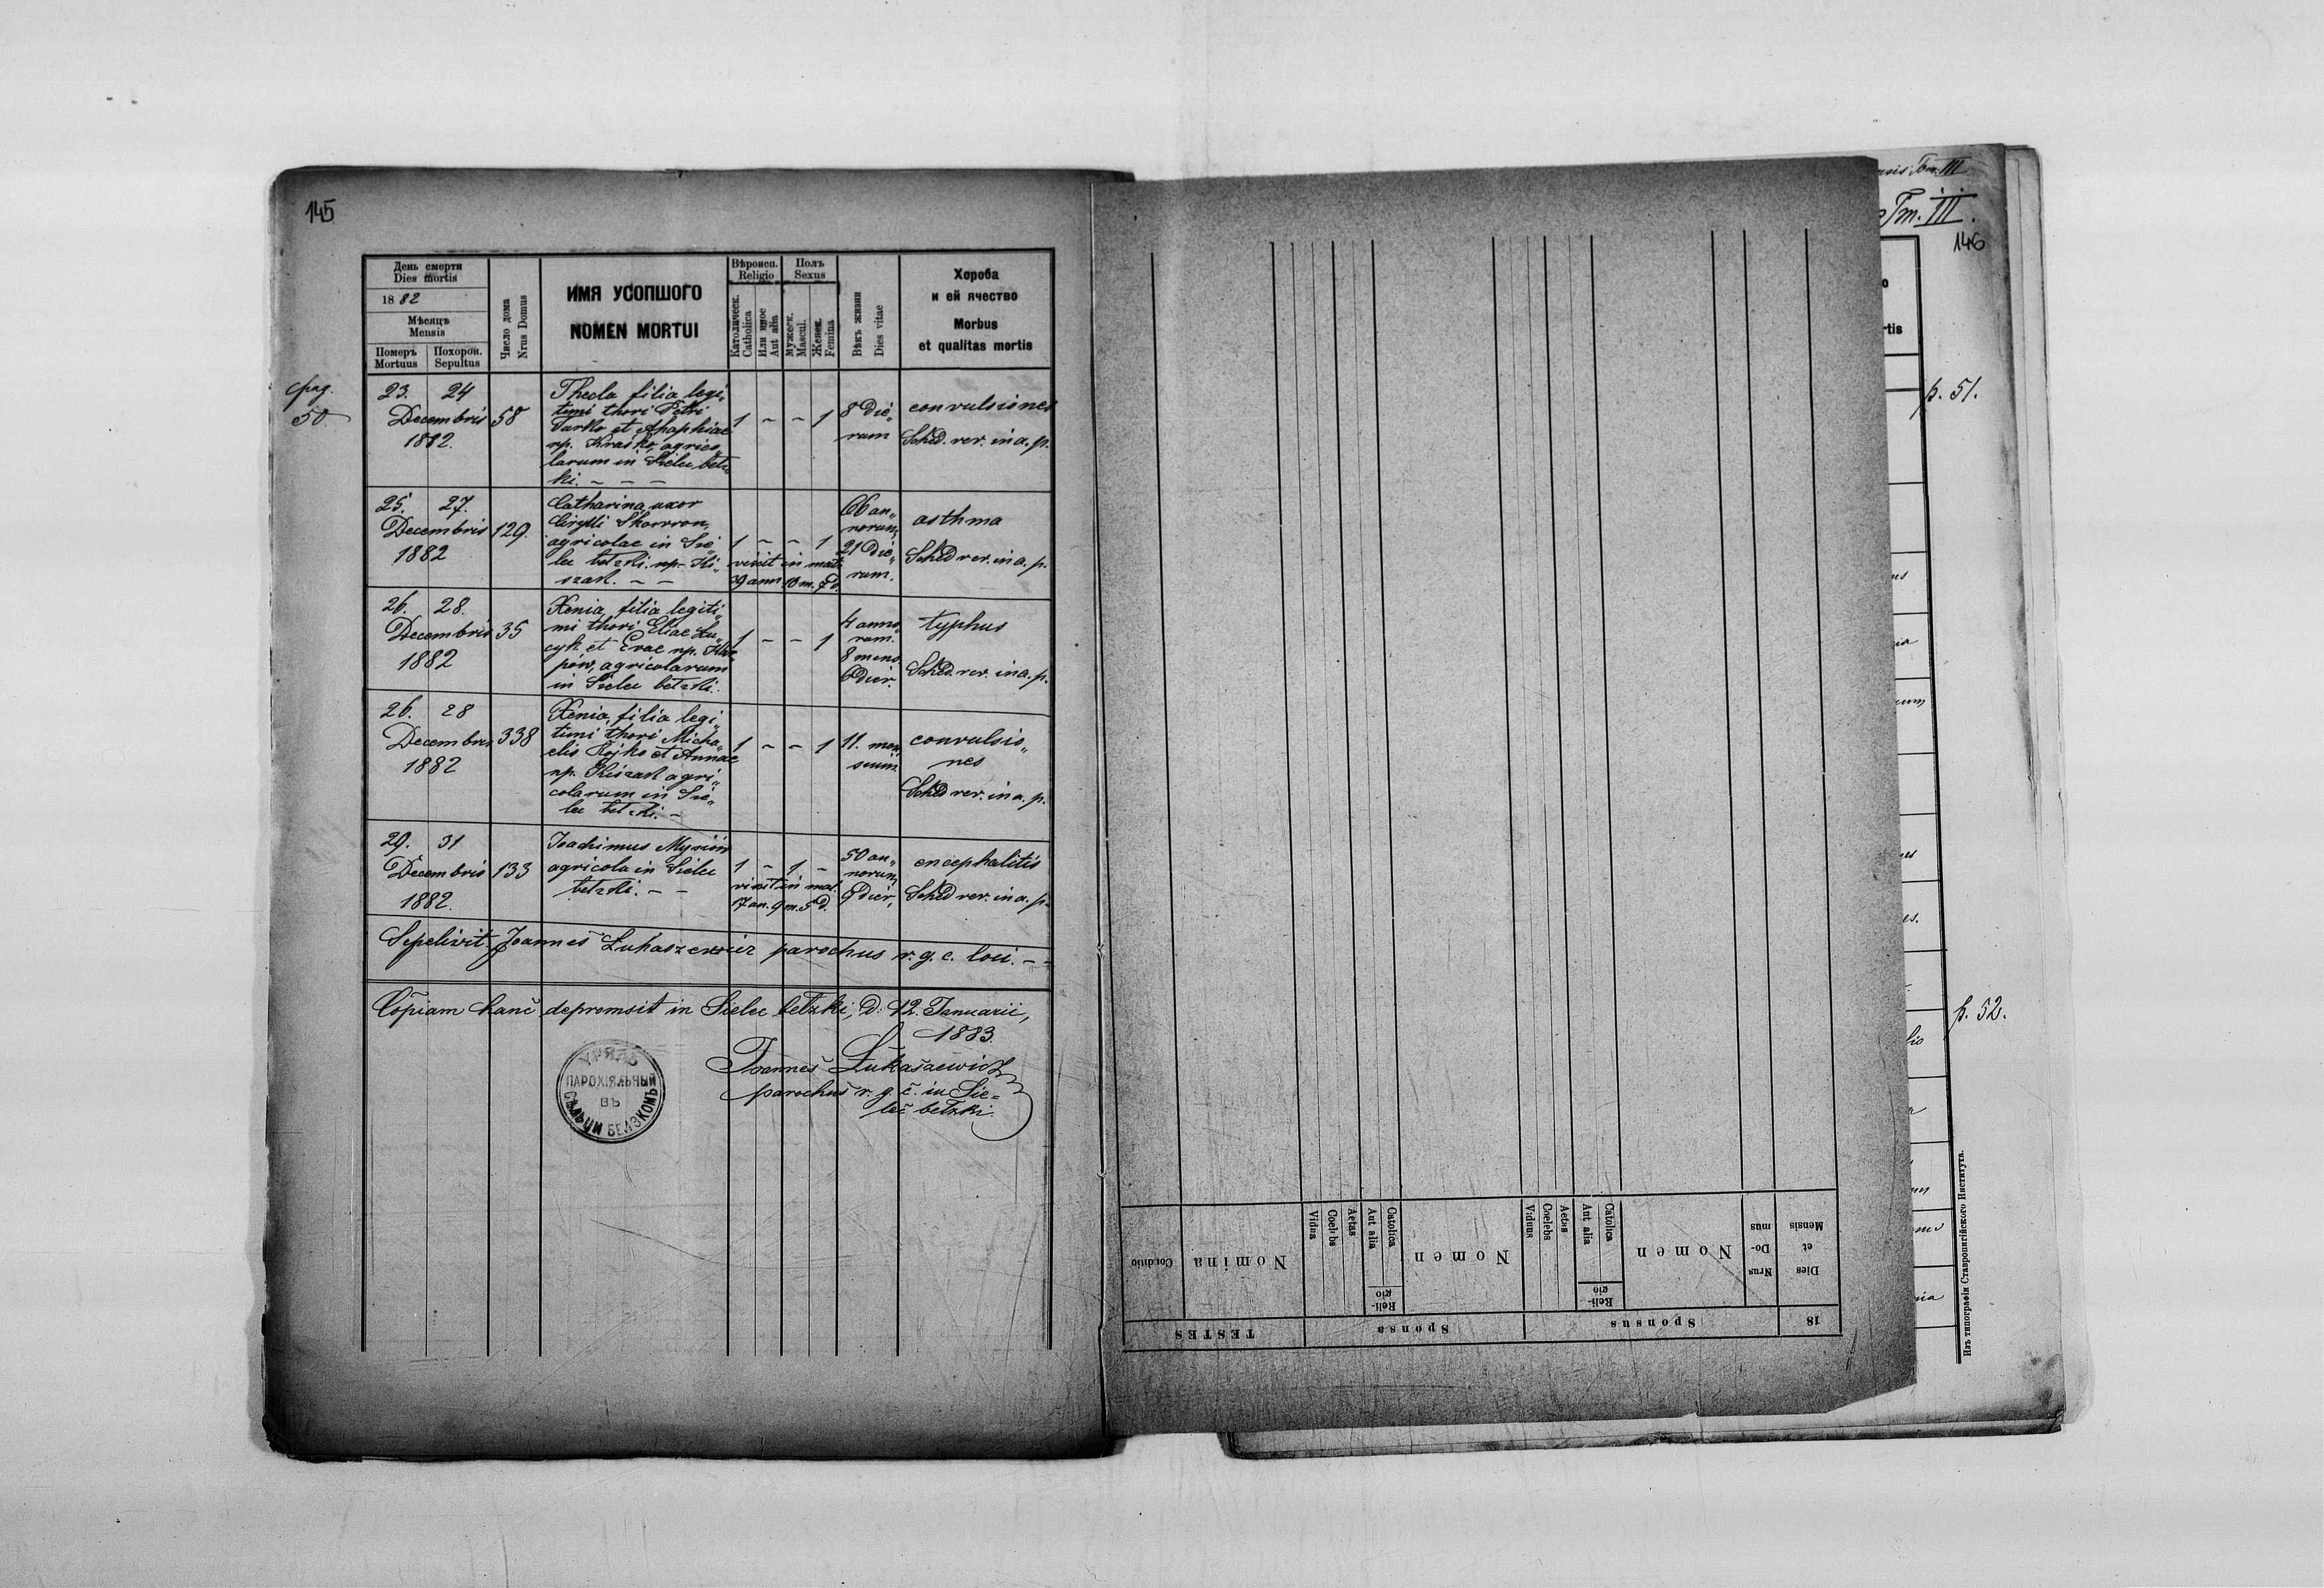 145
День смерти
Dies mortis
1882
Мѣсяцъ
Mensis
Померъ
Mortuus
Похорон.
Sepultus
Число дома
Nrus Domus
ИМЯ УСОПШОГО
NOMEN MORTUI
Вѣроисп.
Religio
Католическ.
Catholica
Или иное
Aut alia
Полъ
Sexus
Мужеск.
Mascul.
Женск.
Femina
Вѣкъ жизни
Dies vitae
Хороба
и ей ячество
Morbus
et qualitas mortis
pag.
50
23. 24
Decembris
1882.
58
Thecla filia legi„
timi thori Petri
Durko et Ahaphiae
np. Kraśko, agrico„
larum in Sielec bełz„
ki. – – –
1 – – 1
8 die„
rum
convulsiones
Sched. rev. in a. p.
25. 27.
Decembris
1882
129.
Catharina uxor
Cirylli Skowron,
agricolae in Sie„
lec bełzki. np. Ki„
szak. – –
1 – – 1
vixit in mat.
39 ann 10 m. 7 d.
66 an„
norum,
21 die„
rum.
asthma
Sched rev. in a. p.
26. 28.
Decembris
1882
35
Xenia, filia legiti„
mi thori Eliae Lu„
cyk et Evae np.
pów, agricolarum
in Sielec bełzki.
1 – – 1
4 anno„
rum.
8 mens.
6 dier.
typhus
Sched. rev. in a. p.
26. 28
Decembris
1882
338
Xenia, filia legi„
timi thori Micha„
elis Kojko et Annae
np. Kiszak agri„
colarum in Sie„
lec bełzki. –
1 – – 1
11. men„
sium.
convulsio„
nes
Sched rev. in a. p.
29. 31
Decembris
1882.
133
Joachimus Mysiów
agricola in Sielec
bełzki. – –
1 – 1 –
vixit in mat.
17 an. 9 m. 5 d.
50 an„
norum,
9 dier,
encephalitis
Sched rev. in a. p.
Sepelivit Joannes Łukaszewicz parochus r. g. c. loci. – –
Copiam hanc depromsit in Sielec bełzki, d. 12. Januarii,
1883.
Joannes Łukaszewicz
parochus r. g. c. in Sie=
lec bełzki.
УРЯДЪ
ПАРОХІЯЛЬНЫЙ
ВЪ
СѢЛЬЦИ БЕЛЗКОМЪ
18
Dies
et
Mensis
Nrus
Do-
mus
Sponsus
Nomen
Reli-
gio
Catolica
Aut alia
Aetas
Coelebs
Viduus
Sponsa
Nomen
Reli-
gio
Catolica
Aut alia
Aetas
Coelebs
Vidua
TESTES
Nomina
Conditio
Tom. III
Tm. III.
146
p. 51.
p. 52.
Изъ типографіи Ставропигійского Института.